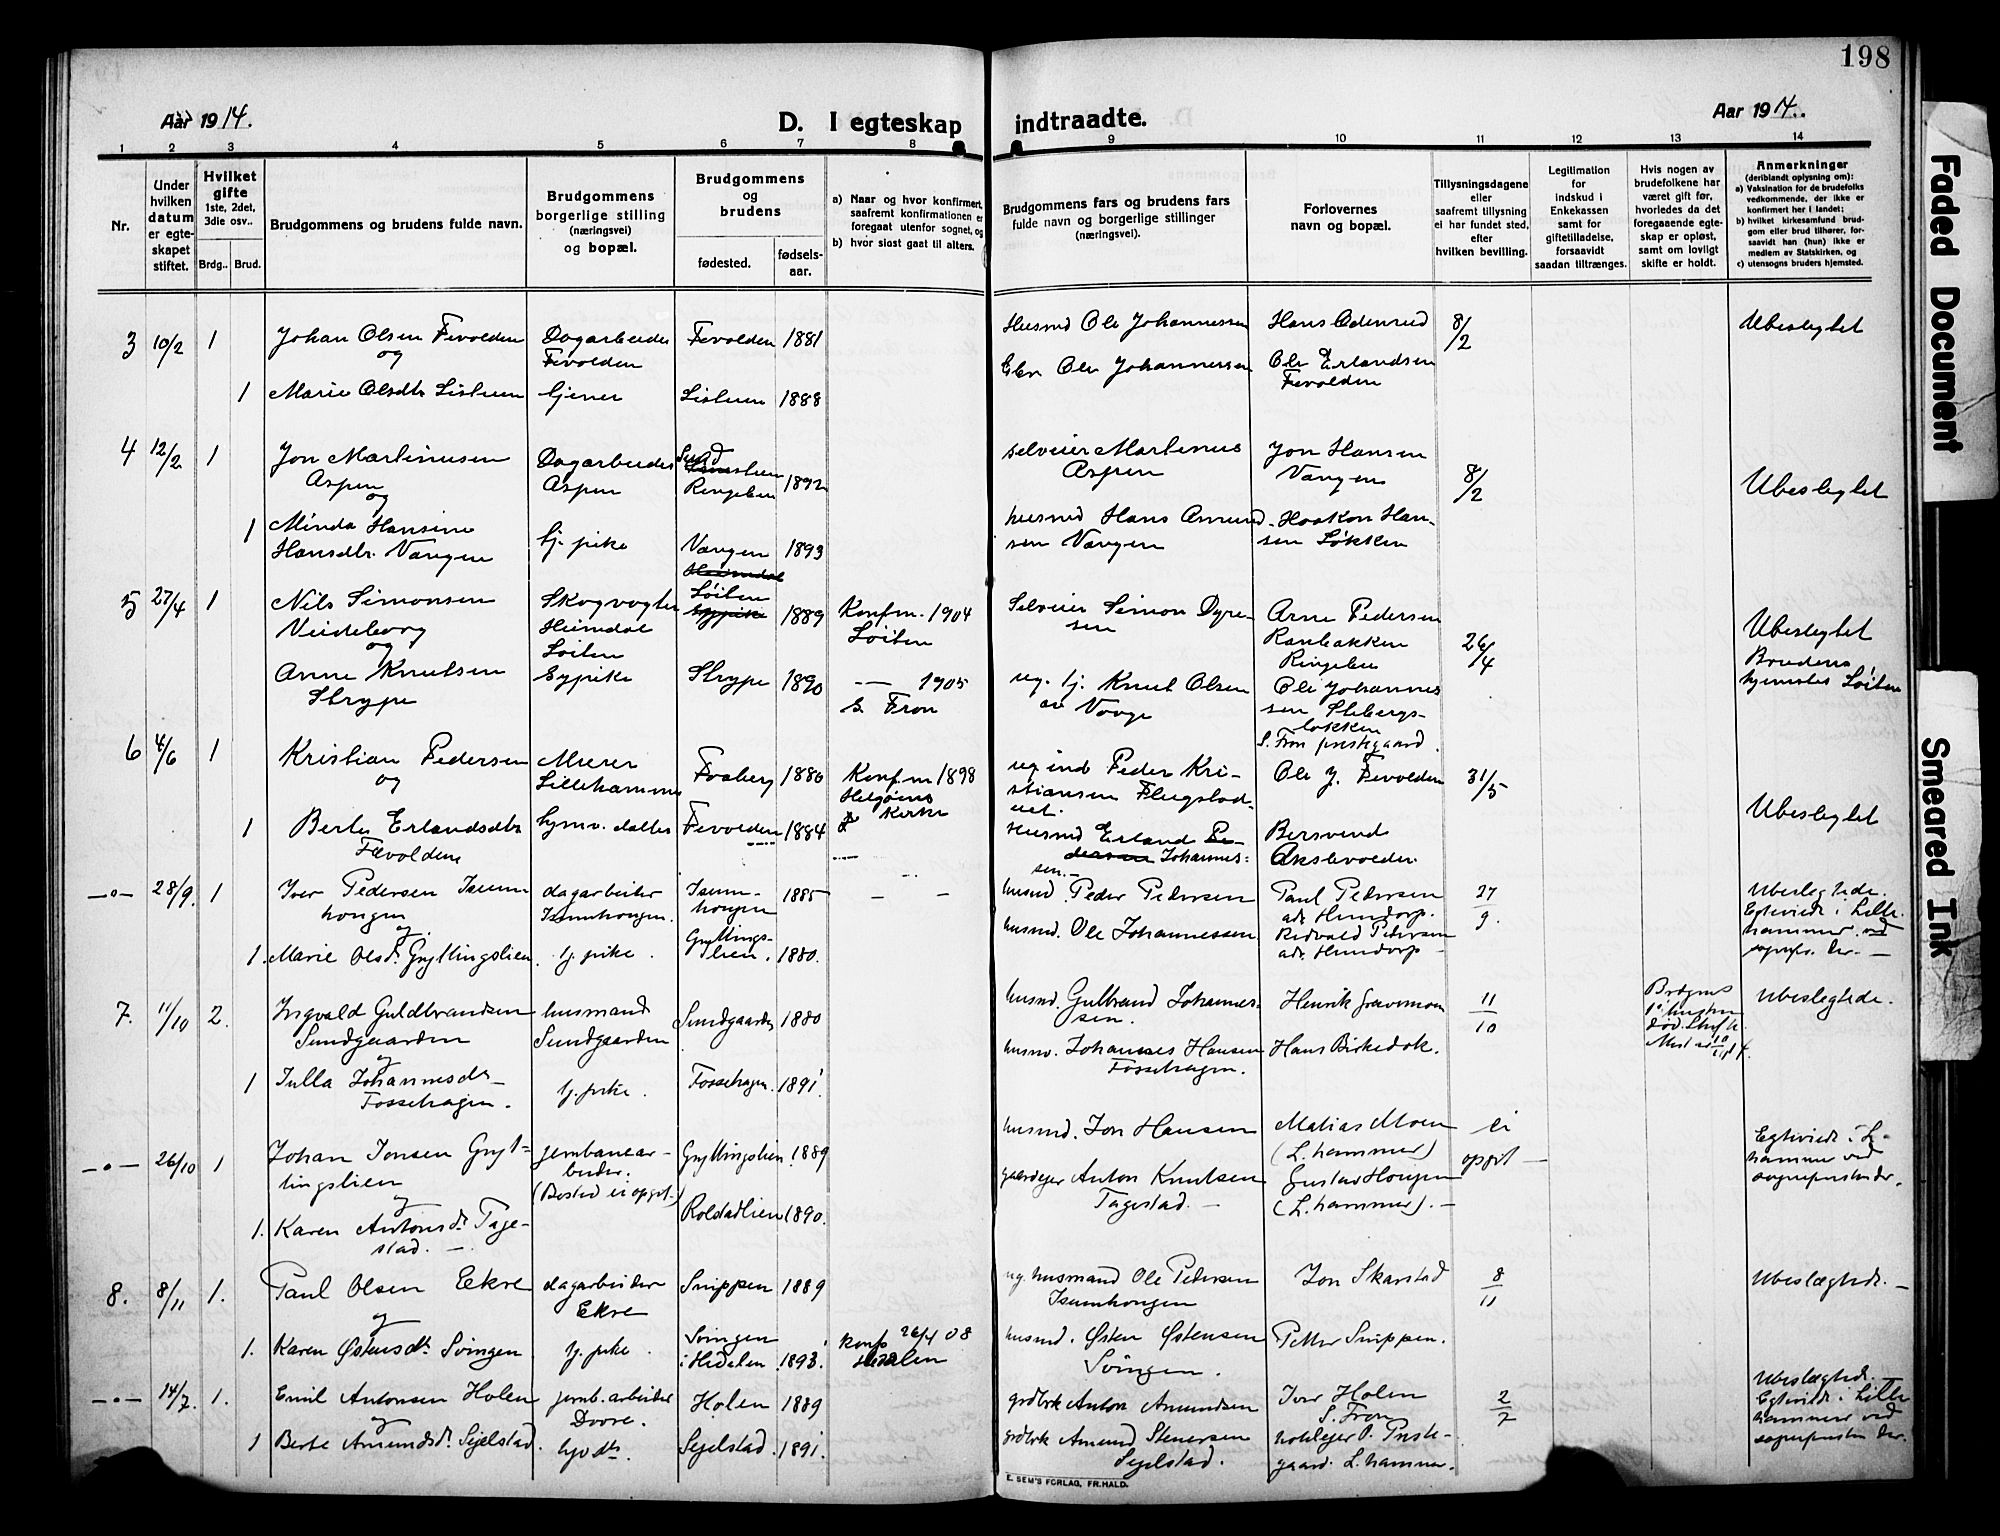 198
Aar 1914.
D. I egteskap indtraadte.
Aar 1914.
1 2 3 4 5 6 7 8 9 10 11 12 13 14
Nr.
Under hvilken datum er egte-skapet stiftet.
Hvilket gifte 1ste, 2det, 3die osv..
Brdg.. Brud.
Brudgommens og brudens fulde navn.
Brudgommens borgerlige stilling (næringsvei) og bopæl.
Brudgommens og brudens
fødested.
fødsels-aar.
a) Naar og hvor konfirmert, saafremt konfirmationen er foregaat utenfor sognet, og
b) hvor sidst gaat til alters.
Brudgommens fars og brudens fars fulde navn og borgerlige stillinger (næringsvei).
Forlovernes navn og bopæl.
Tillysningsdagene eller saafremt tillysning ei har fundet sted, efter hvilken bevilling.
Legitimation for indskud i Enkekassen samt for giftetilladelse, forsaavidt saadan tiltrænges.
Hvis nogen av brudefolkene har været gift før, hvorledes da det foregaaende egte-skap er opløst, samt om lovligt skifte er holdt.
Anmerkninger (deriblandt oplysning om):
a) Vaksination for de brudefolks vedkommende, der ikke er konfirmert her i landet;
b) hvilket kirkesamfund brud-gom eller brud tilhører, for-saavidt han (hun) ikke er medlem av Statskirken, og
c) utensogns bruders hjemsted.
3 10/2 1 Johan Olsen Fevolden Dagarbeider Fevolden 1881 Husmd Ole Johannessen Hans Odenrud 8/2 Ubeslegtet
og Fevolden
1 Marie Olsdtr Listuen tjener Listuen 1888 Gbr Ole Johannessen Ole Erlandsen
Fevolden
4 12/2 1 Jon Martinusen Dagarbeider Ringebu 1892 selveier Martinus Jon Hansen 8/2 Ubeslegtet
Aspen Aspen Aspen Vangen
og
1 Minda Hansine tj. pike Vangen 1893 husmd Hans Amund- Haakon Han-
Hansdtr. Vangen sen Vangen sen Løkken
5 27/4 1 Nils Simonsen Skogvogter Løiten 1889 Konfm. 1904 Selveier Simon Dyre- Arne Pedersen 26/4 Ubeslegtet
Veideborg Heimdal Løiten sen Ranbakken Brudens
og Løiten Ringebu hjemsted Løiten
Anne Knutsen Sypike Strype 1890 — 1905 ug. tj. Knut Olsen Ole Johannes
Strype S. Fron av Vaage sen Stebergs-
løkken
S. Fron prestegaard.
6 4/6 1 Kristian Pedersen Murer Faaberg 1880 Konfm 1898 Peder Kri- Ole J. Fevolden 31/5 Ubeslegtet
og Lillehammer Helgøens stiansen Flugstad-
Kirke eiet.
1 Berte Erlandsdtr hjmv. datter Fevolden 1884 Husmd Erland Pe- Bersvend
Fævolden dersen Johannes- Akslevolden
sen.—
—o— 28/9. 1 Iver Pedersen Isum- dagarbeider Isum- 1885 — — husmd. Peder Pedersen Paul Pedersen 27/9. Ubeslegtede.
hougen Isumhougen. hougen adr. Hundorp. Egteviede i Lille-
og. husmd. Ole Johannessen Redvald Pedersen hammer ved
1. Marie Olsdr. Gryttingslien. tj. pike. Gryttings-lien. 1880. adr. Hundorp — sognepr. der.—
7. 11/10 2. Ingvald Guldbrandsen husmand Sundgaarden 1880 husmd. Gulbrand Johannes- Henrik Gravermoen 11/10 Ubeslegtede.
Sundgaarden Sundgaarden sen.
og husm. Johannes Hansen Hans Birkedok.
1 Julla Johannesdr— tj. pike. Fossehagen. 1891. Fossehagen.
Fossehagen.
—o— 26/10 1 Johan Jonsen Gryt- jernbanear- Gryttingslien. 1889 husmd. Jon Hansen Matias Moen ei Egteviede i L-
tingslien beider. (L.hammer) opgit — hammer ved
og (Bosted ei opgit—) gaardejer Anton Knutsen Gustav Hougen sognepresten der.
1. Karen Antonsdr. Tage- Rolstadlien 1890. Tagestad. — (L.hammer).—
stad. —
8. 8/11 1. Paul Olsen Eekre dagarbeider Snippen 1889 ug. husmand Ole Pedersen Jon Skarstad 8/11 Ubeslægtede. —
og Ekre Isumhougen
1. Karen Østensdr. Svingen tj. pike. Svingen 1893. konf 26/4 08 husmd. Østen Østensen Petter Snippen.
i Hedalen Hedalen Svingen.
—o— 14/7. 1. Emil Antonsen Holen jernb.arbeider Holen 1889 grdbrk Anton Amundsen Iver Holen 2/7 Ubeslægtede.
og Dovre. S. Fron Egteviede i Lille
1 Berte Amundsdr. Sejelstad. hjv dtr. Sejelstad. 1891. grdbrk Amund Stenersen hotelejer P. Preste- hammer ved
Sejelstad. gaard. L.hammer. sognepresten der.
E. SEM'S FORLAG, FR.HALD.
Faded Document
Smeared Ink